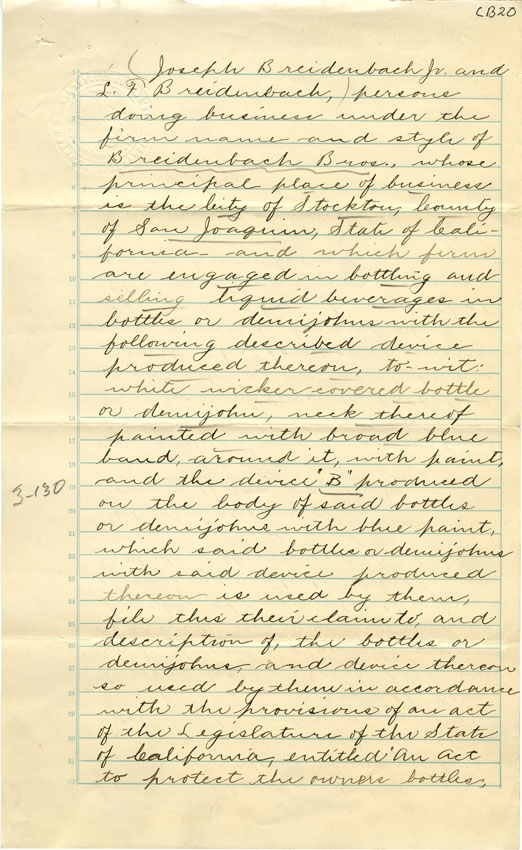 CB20
(Joseph Breidenbach Jr. and
L. F. Breidenbach,) persons
doing business under the
firm name and style of
Breidenbach Bros., whose
principal place of business
is the City of Stockton, County
of San Joaquin, State of Cali-
fornia - and which firm
are engaged in bottling and
selling liquid beverages in
bottles or demijohns with the
following described device
produced thereon, to-wit:
white wicker-covered bottle
or demijohn, neck thereof
painted with broad blue
band, around it, with paint,
and the device "B" produced
on the body of said bottles
or demijohns with blue paint,
which said bottles or demijohns
with said device produced
thereon is used by them,
file this their claim to, and
description of, the bottles or
demijohns, and device thereon
so used by them in accordance
with the provisions of an act
of the Legislature of the State
of California, entitled "An Act
to protect the owners bottles,
3-130